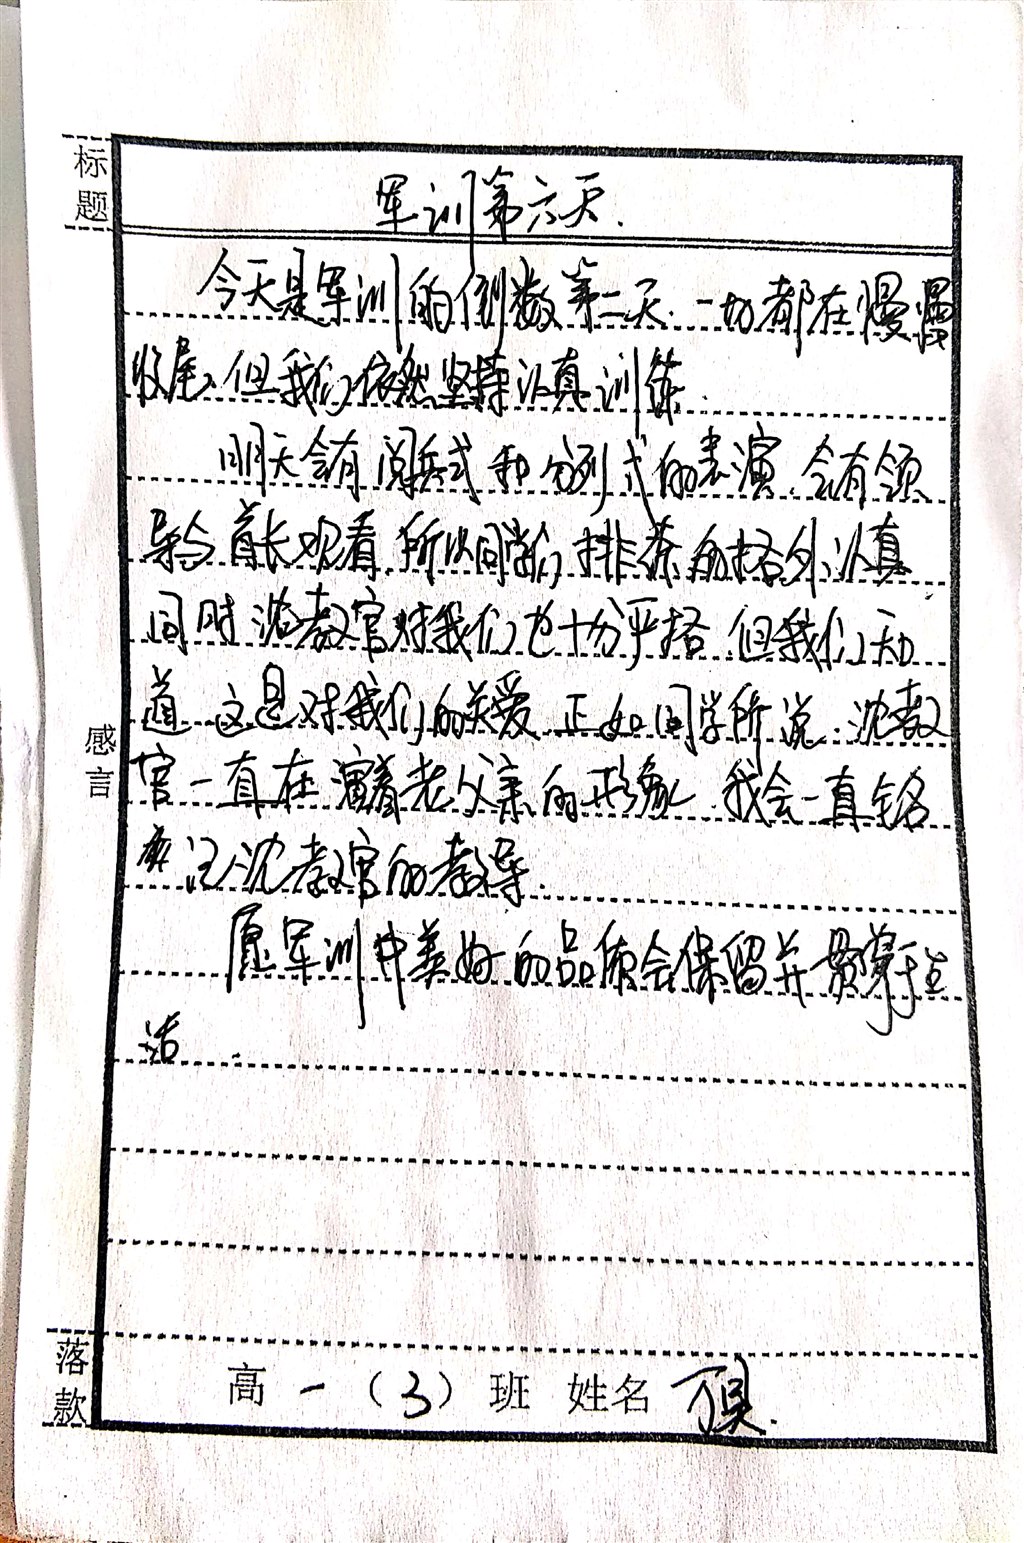 标题
军训第六天.
今天是军训的倒数第二天.一切都在慢慢
收尾,但我们依然坚持认真训练.
明天会有阅兵式和分列式的表演.会有领
导与首长观看.所以同学们排练的格外认真
同时沈教官对我们也十分严格.但我们知
道 这是对我们的关爱.正如同学所说.沈教
官一直在演着老父亲的形象.我会一直铭
记沈教官的教导.
愿军训中美好的品质会保留并贯穿于生
活.
感言
落款
高一(3)班 姓名